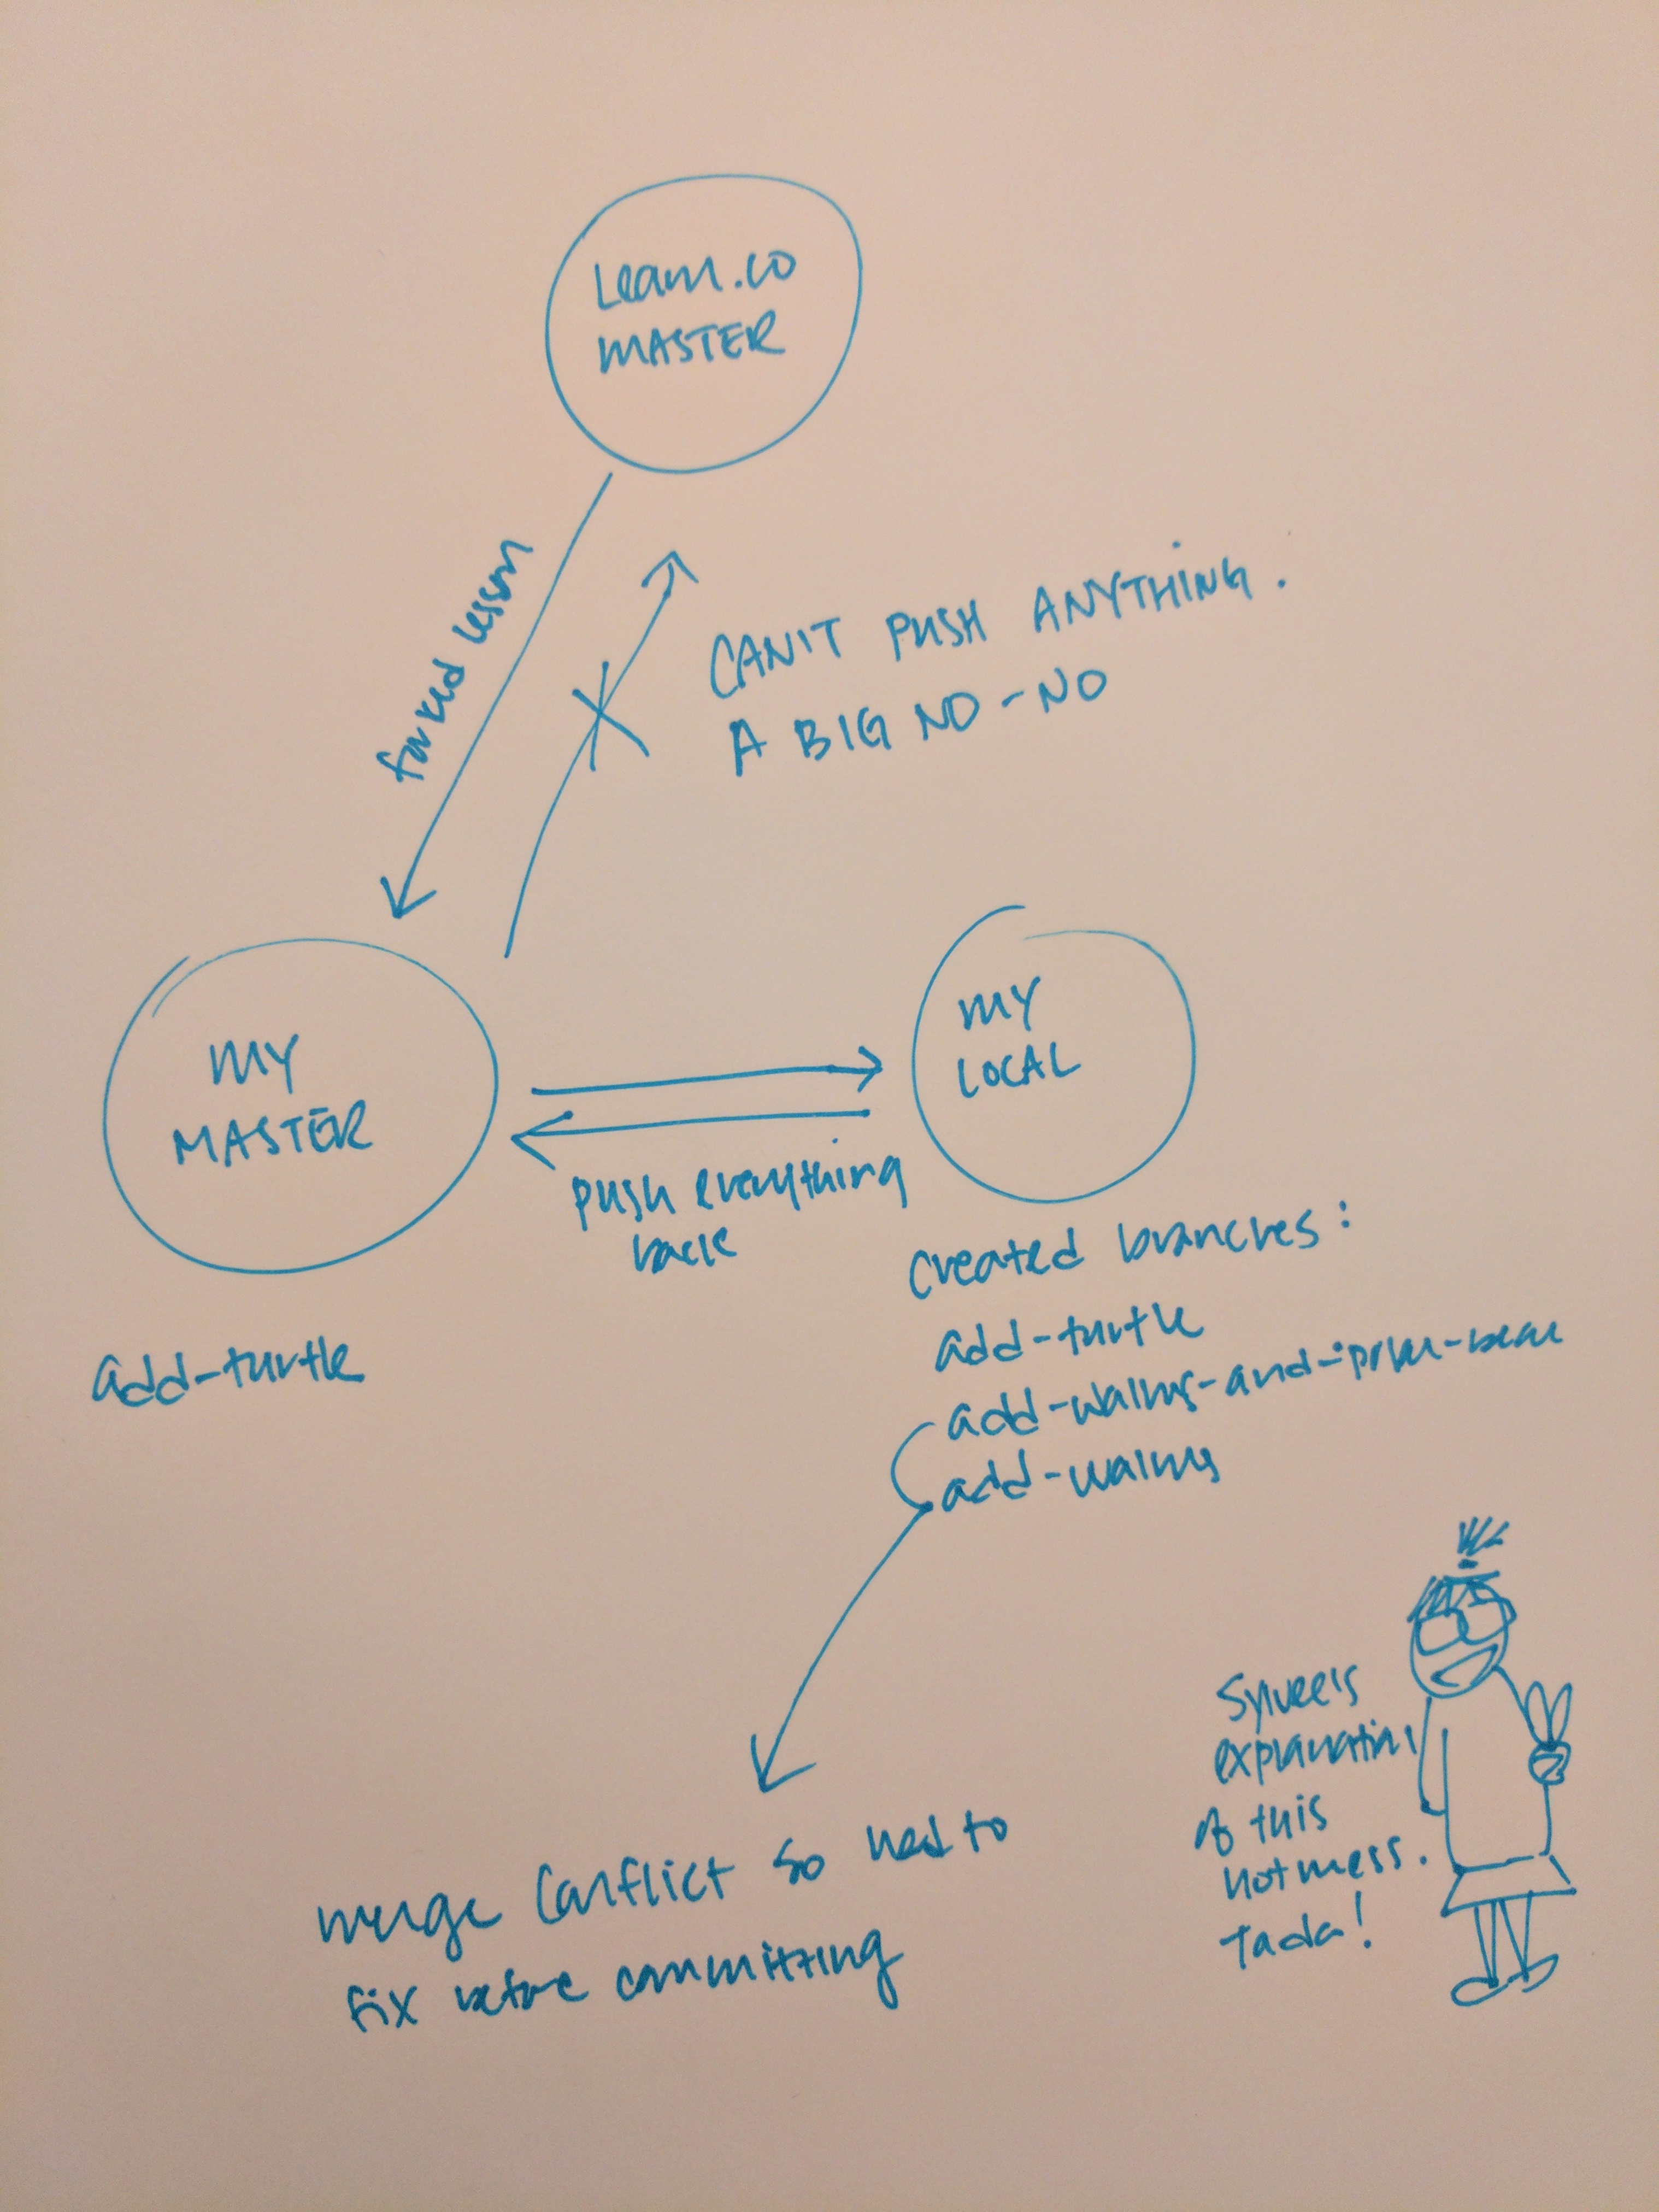 Learn.co
MASTER
forked lesson
CAN'T PUSH ANYTHING.
A BIG NO-NO
MY
MASTER
MY
LOCAL
push everything
back
add-turtle
created branches:
add-turtle
add-walrus-and-polar-bear
add-walrus
merge conflict so need to
fix before committing
Sylvee's
explanation
of this
hot mess.
Tada!